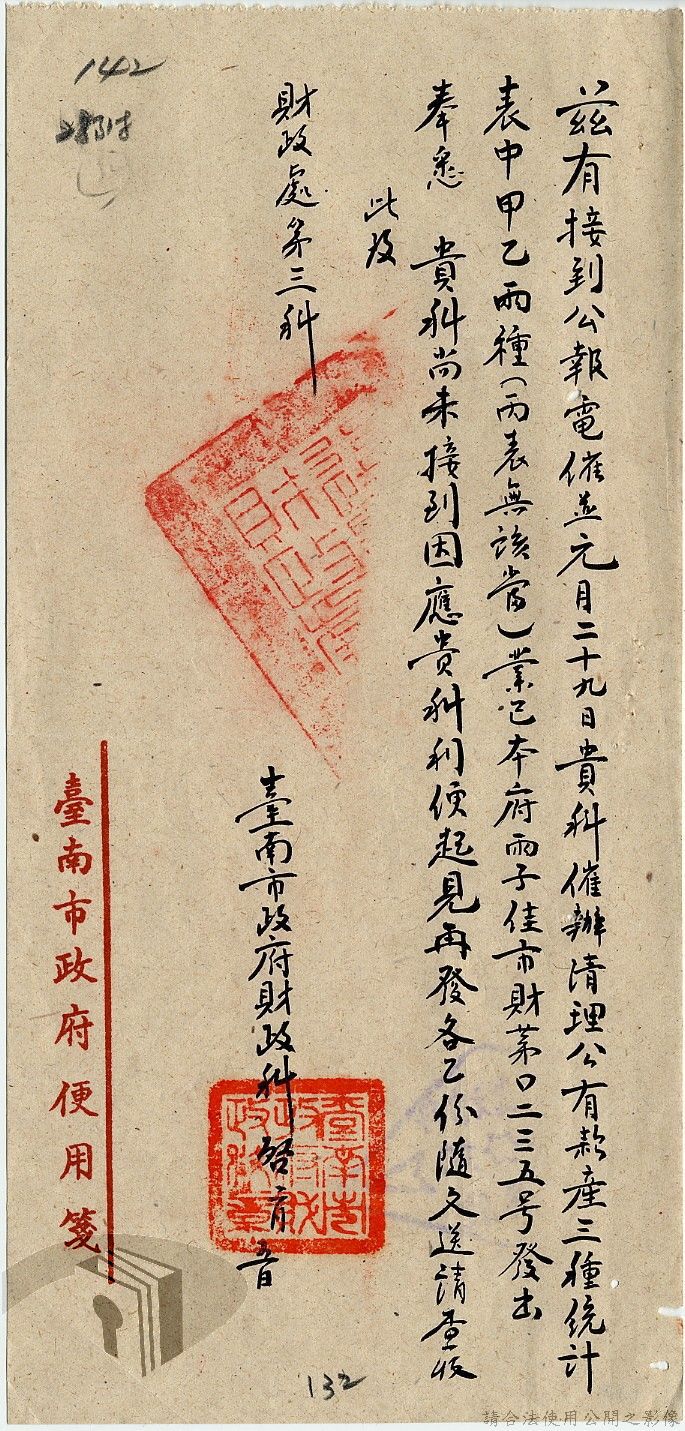 142
茲有接到公報電催並元月二十九日貴科催辦清理公有款產三種統計
表中甲乙兩種(丙表無該當)業已本府兩子佳市財第0二三五号發出
奉悉 貴科尚未接到因應貴科利便起見再發各乙份隨文送請查收
此致
財政處第三科
臺南市政府財政科啓
臺南市政府財政科章
臺南市政府便用箋
132
請合法使用公開之影像